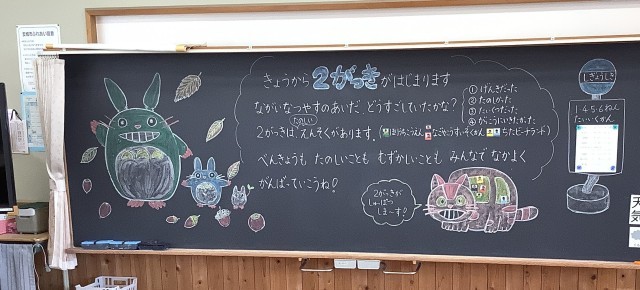 きょうから2がっきがはじまります
ながいなつやすのあいだ、どうすごしていたかな?
たのしい
2がっきは、えんそくがあります。
べんきょうも たのしいことも むずかしいことも みんなで なかよく
がんばっていこうね!
① げんきだった
② たのしかった
③ たいくつだった
④ がっこうにいきたかった
2がっきが
しゅっぱつ
しま〜す!
しぎょうしき
1456ねん
たいいくかん
天
気